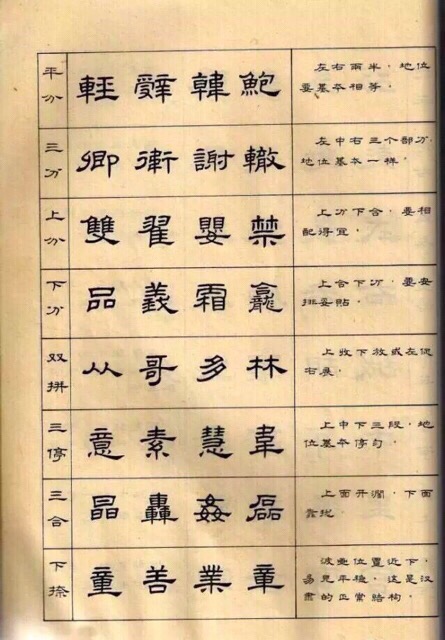 平分
輕 辭 韓 鮑
左右兩半，地位
要基本相等。
三分
卿 衛 謝 轍
左中右三个部分，
地位基本一样。
上分
雙 翟 嬰 禁
上分下合，要相
配得宜。
下分
品 義 霜 龕
上合下分，要安
排妥贴。
双拼
从 哥 多 林
上收下放或左促
右展。
三停
意 素 慧 韋
上中下三段，地
位基本停匀。
三合
晶 轟 姦 磊
上面开阔，下面
靠拢。
下捺
童 善 業 章
位置近下，
易見平稳，这是汉
隶的正常结构。